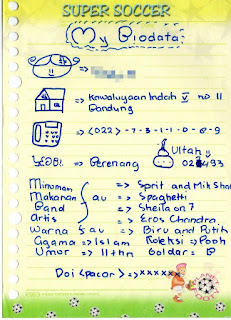 SUPER SOCCER
My Biodata
=>
=> Kawaluyaan Indah V no 11
Bandung
=> (022) - 7-3-1-1-0-8-9
Hobi => Berenang
Ultah
Minuman => Sprit and Milk Shak
Makanan au => Spaghetti
Band => Sheila on 7
Artis => Eros Chandra
Warna au => Biru and Putih
Agama => Islam Koleksi => Pooh
Umur => 11 thn Goldar = B
Doi (pacar) => xxxxxx